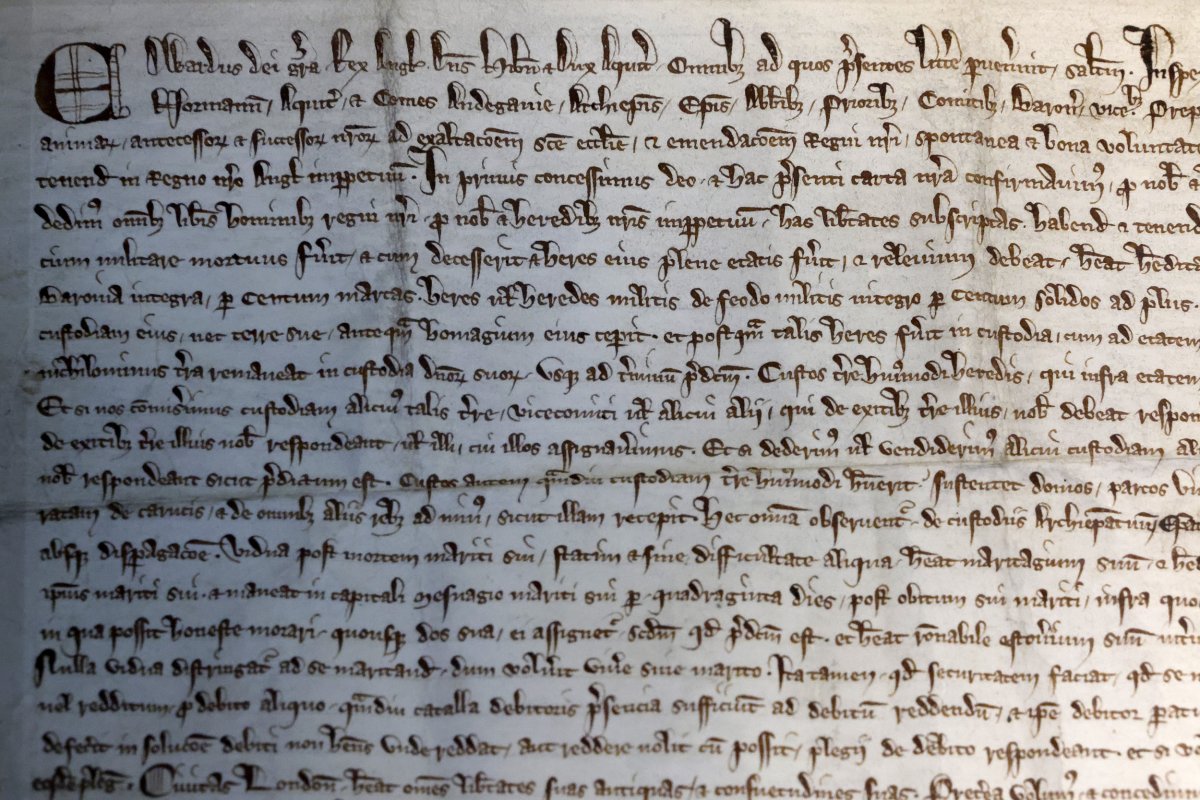 Edwardus dei gr̃a Rex Angl Dñs Hib̃n & Dux Aquit̃ Omnibȝ ad quos p̃sentes litt̃e pervenĩnt, sal̃tm. Inspe
Normann̄, Aquit̃, & Comes Andegavie, Archiepĩs, Ep̃is, Abb̃ibȝ, Prioribȝ, Comitibȝ, Baroñ, vicec̃, Prep
animaꝝ, antecessoꝝ & successoꝝ nr̃oꝝ ad exaltac̃oem sc̃e eccl̃ie, & emendac̃oem Regni nr̃i, spontanea & bona voluntat
tenend in Regno nr̃o Angl imꝑpetuū. In primis concessimus deo, & hac p̃senti carta nr̃a confirmavimꝰ, ꝓ nob̃ &
dedimꝰ om̃ibȝ lib̃is hominibȝ regni nr̃i, ꝓ nob̃ & heredibȝ nr̃is imꝑpetuū, has lib̃tates subscriptas. habend & tenend
cium militare mortuus fũit, & cum decesserit & heres eius plene etatis fũit, & relevium debeat, h̃eat h̃edita
Baronia integra, ꝑ Centum marcas. heres ul̃ heredes militis de feodo militis integro ꝑ Centum solidos ad plus.
custodiam eius, nec terre sue, anteqm̃ homagium eius cepit. et postqm̃ talis heres fũit in custodia, cum ad etatem
nichilominus t̃ra remaneat in custodia dñoꝝ suoꝝ, usqȝ ad t̃minū p̃dc̃m. Custos t̃re huiꝰmodi heredis, qui infra etatem
Et si nos com̃is̃imus custodiam alicuiꝰ talis t̃re, vicecomiti ul̃ alicui alii, qui de exitibȝ t̃re illius, nob̃ debeat respon
de exitibȝ t̃re illius nob̃ respondeant, ul̃ illi, cui illos assignav̂imus. Et si dederimꝰ ul̃ vendiderimꝰ alicui custodiam ali
nob̃ respondeant sicut p̃dictum est. Custos autem qm̃diu custodiam t̃re huiꝰmodi h̃uerit, sustentet domos, parcos vi
ratam de carucis, & de omnibȝ aliis rebȝ ad minꝰ, sicut illam recepit. Hec om̃ia observent̃, de custodiis Archiep̃atuum, Ep̃a
absqȝ disꝑagac̃oe. Vidua post mortem mariti sui, statim & sine difficultate aliqua, h̃eat maritagium suū, & h̃e
ip̃ius mariti sui. & maneat in capitali mesuagio mariti sui ꝑ quadraginta dies, post obitum sui mariti, infra quo
in qua possit honeste morari, quousqȝ dos sua, ei assignet̃, sc̃dm qd̃ p̃dc̃m est. et h̃eat rõnabile estov̂ium suū int̃i
Nulla vidua distringat̃ ad se maritand, dum volũit viv̂e sine marito. Ita tamen, qd̃ securitatem faciat, qd̃ se n
vel redditum, ꝓ debito aliquo, qm̃diu catalla debitoris p̃sencia sufficiūt ad debitū reddendū, & ip̃e debitor parat
defec̃it in soluc̃oe debiti non h̃ens unde reddat, aut reddere nolit cū possit, plegii de debito respondeant. et si v
eosdē pleg̃. Civitas London̄, h̃eat om̃es lib̃tates suas antiquas, & consuetudines suas. Pret̃ea volumꝰ, & concedim